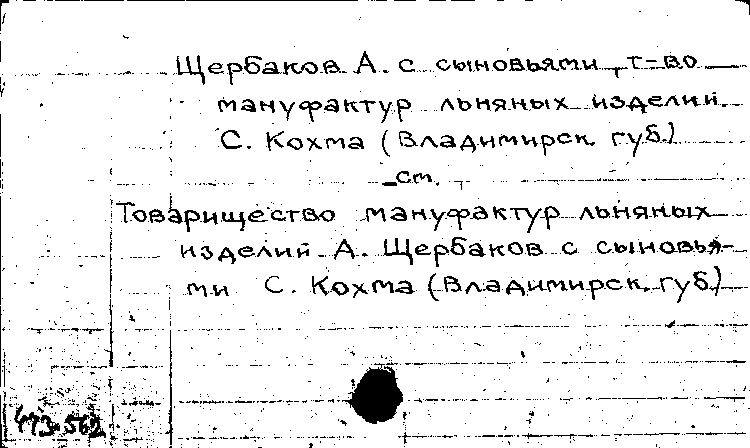 Щербаков А. с сыновьями, т-во
мануфактур льняных изделий.
С. Кохма (Владимирск. губ.)
см.
Товарищество мануфактур льняных
изделий А. Щербаков с сыновья-
ми С. Кохма (Владимирск. губ.)
473-562